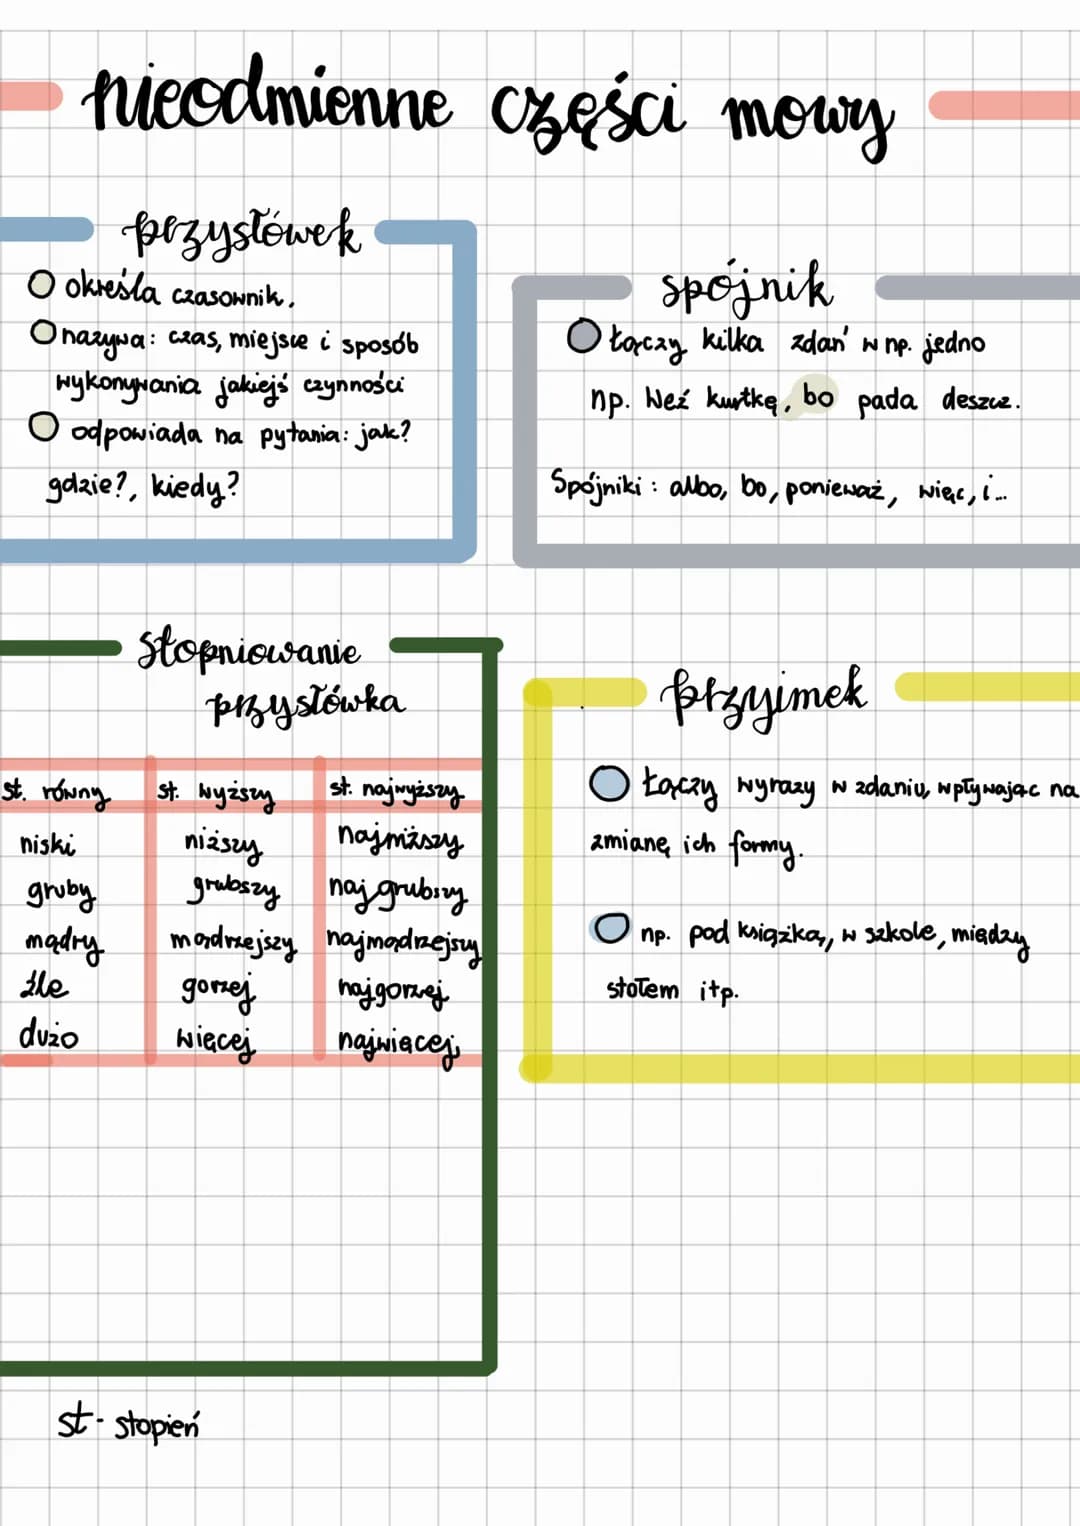 nieodmienne części mowy
przysłówek
określa czasownik.
nazywa: czas, miejsce i sposób
wykonywania jakiejś czynności
odpowiada na pytania: jak?
gdzie?, kiedy?
spójnik
łączy kilka zdań w np. jedno
np. Weź kurtkę, bo pada deszcz.
Spójniki: albo, bo, ponieważ, więc, i...
Stopniowanie
przysłówka
st. równy st. wyższy st. najwyższy
niski niższy najniższy
gruby grubszy najgrubszy
mądry mądrzejszy najmądrzejszy
źle gorzej najgorzej
dużo więcej najwięcej
st - stopień
przyimek
Łączy wyrazy w zdaniu, wpływając na
zmianę ich formy.
np. pod książką, w szkole, między
stołem itp.